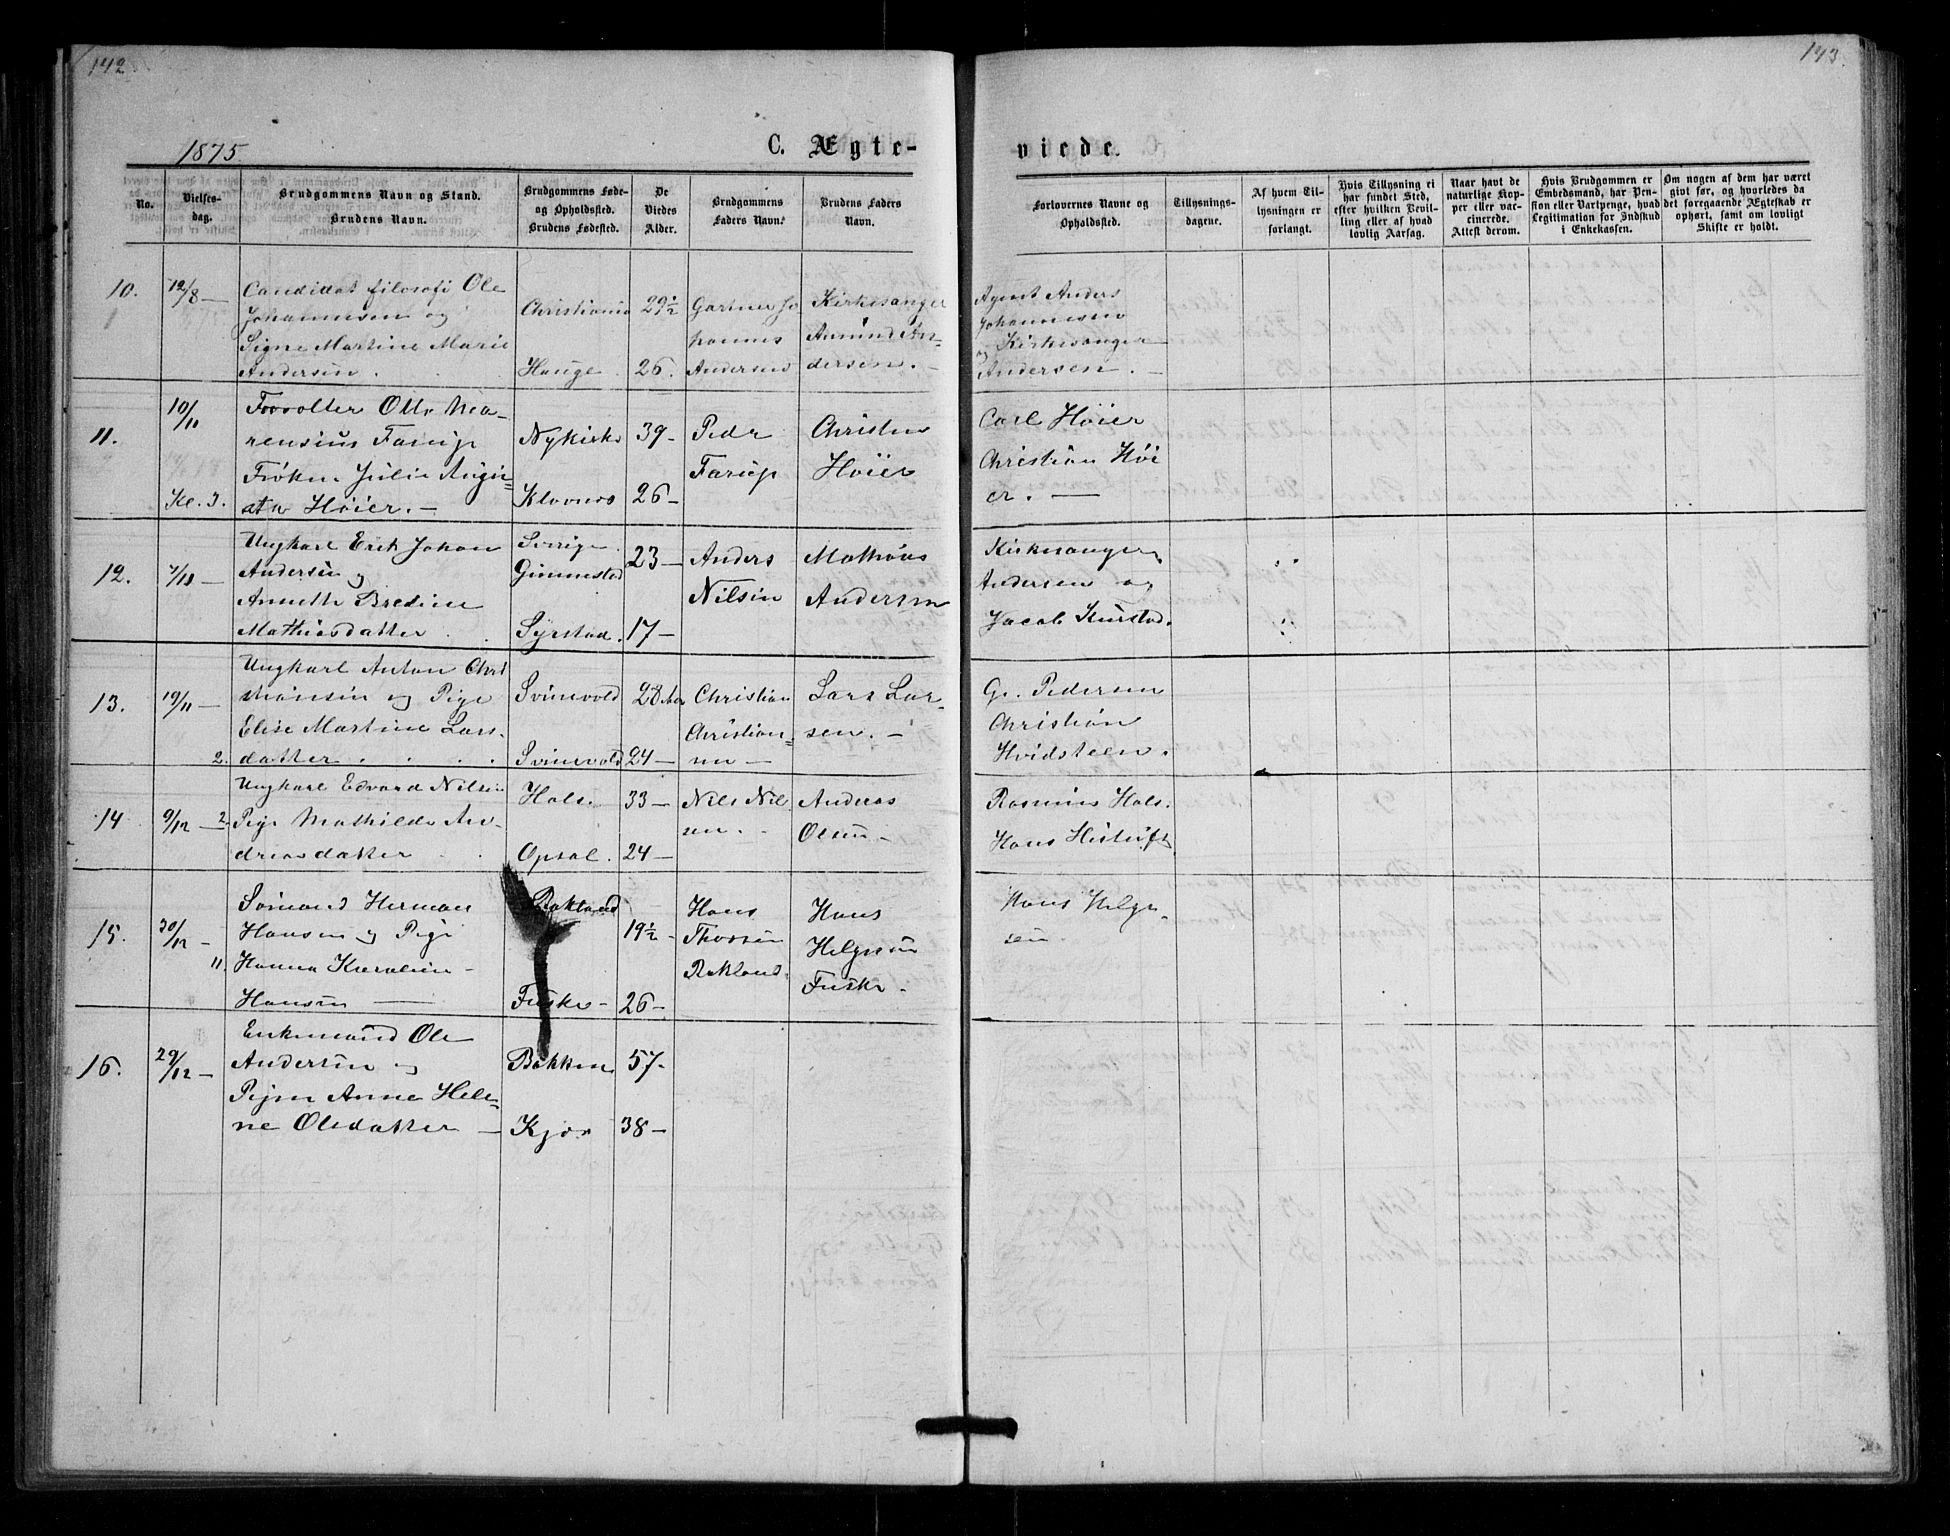 142
143.
1875
C. Ægte-
viede.
No.
Vielses-
dag.
Brudgommens Navn og Stand.
Brudens Navn.
Brudgommens Føde-
og Opholdssted.
Brudens Fødested.
De
Viedes
Alder.
Brudgommens
Faders Navn.
Brudens Faders
Navn.
Forlovernes Navne og
Opholdssted.
Tillysnings-
dagene.
Af hvem Til-
lysningen er
forlangt.
Hvis Tillysning ei
har fundet Sted,
efter hvilken Bevil-
ling eller af hvad
lovlig Aarsag.
Naar havt de
naturlige Kop-
per eller vac-
cinerede.
Attest derom.
Hvis Brudgommen er
Embedsmand, har Pen-
sion eller Vartpenge, hvad
Legitimation for Indskud
i Enkekassen.
Om nogen af dem har været
givt før, og hvorledes da
det foregaaende Ægteskab er
ophørt, samt om lovligt
Skifte er holdt.
10.
12/8 —
Candidat filosofi Ole
Johannesen og
Signe Martine Marie
Andersen .
Christiania
Hauge
29½
26.
Gartner Jo
hannes
Andersen
Kirkesanger
Amund An=
dersen. –
Agent Anders
Johannesen
og Kirkesanger
Andersen. –
11.
10/11
Kl. 3.
Forvalter Otto
rensius Farup
Frøken Julie Augu=
sta Høier. –
Nykirke
39 –
26 –
Peder
Farup
Christen
Høier
Carl Høier
Christian Höi
er. —
12.
/11 —
Ungkarl Erik Johan
Andersen og
Annette Bredine
Mathiasdatter . .
Sverige.
Gimmestad
Syrstad.
23 —
17 –
Anders
Nilsen
Mathias
Andersen
Kirkesanger
Andersen og
Jacob
13.
19/11 —
2.
Ungkarl Anton Chri
stiansen og Pige
Elise Martine Lars-
datter . . . .
Svinevold
Svinevold
28 Aar
24 —
Christian
Christian=
sen —
Lars Lar-
sen. –
G. Pedersen
Christian
Hvidsteen.
14
9/12 — 2.
Ungkarl Edvard Nilsen
Pige Mathilde An-
dreasdatter . .
Hals.
Opsal.
33 —
24 —
Nils Nil
sen. -
Andreas
Olsen –
Rasmus Hals.
Hans
15.
30/12 –
11.
Sømand Herman
Hansen og Pige
Hanna Karoline –
Hansen —
Rokland
Fuske –
19½ -
26 –
Hans
Thorsen
Rokland.
Hans
Helgesen
Fuske -
Hans Helge
sen .
16.
29/12 –
Enkemand Ole
Andersen og
Pigen Anne Hele=
ne Olsdatter —
Bakken
Kjær
57 -
38 –